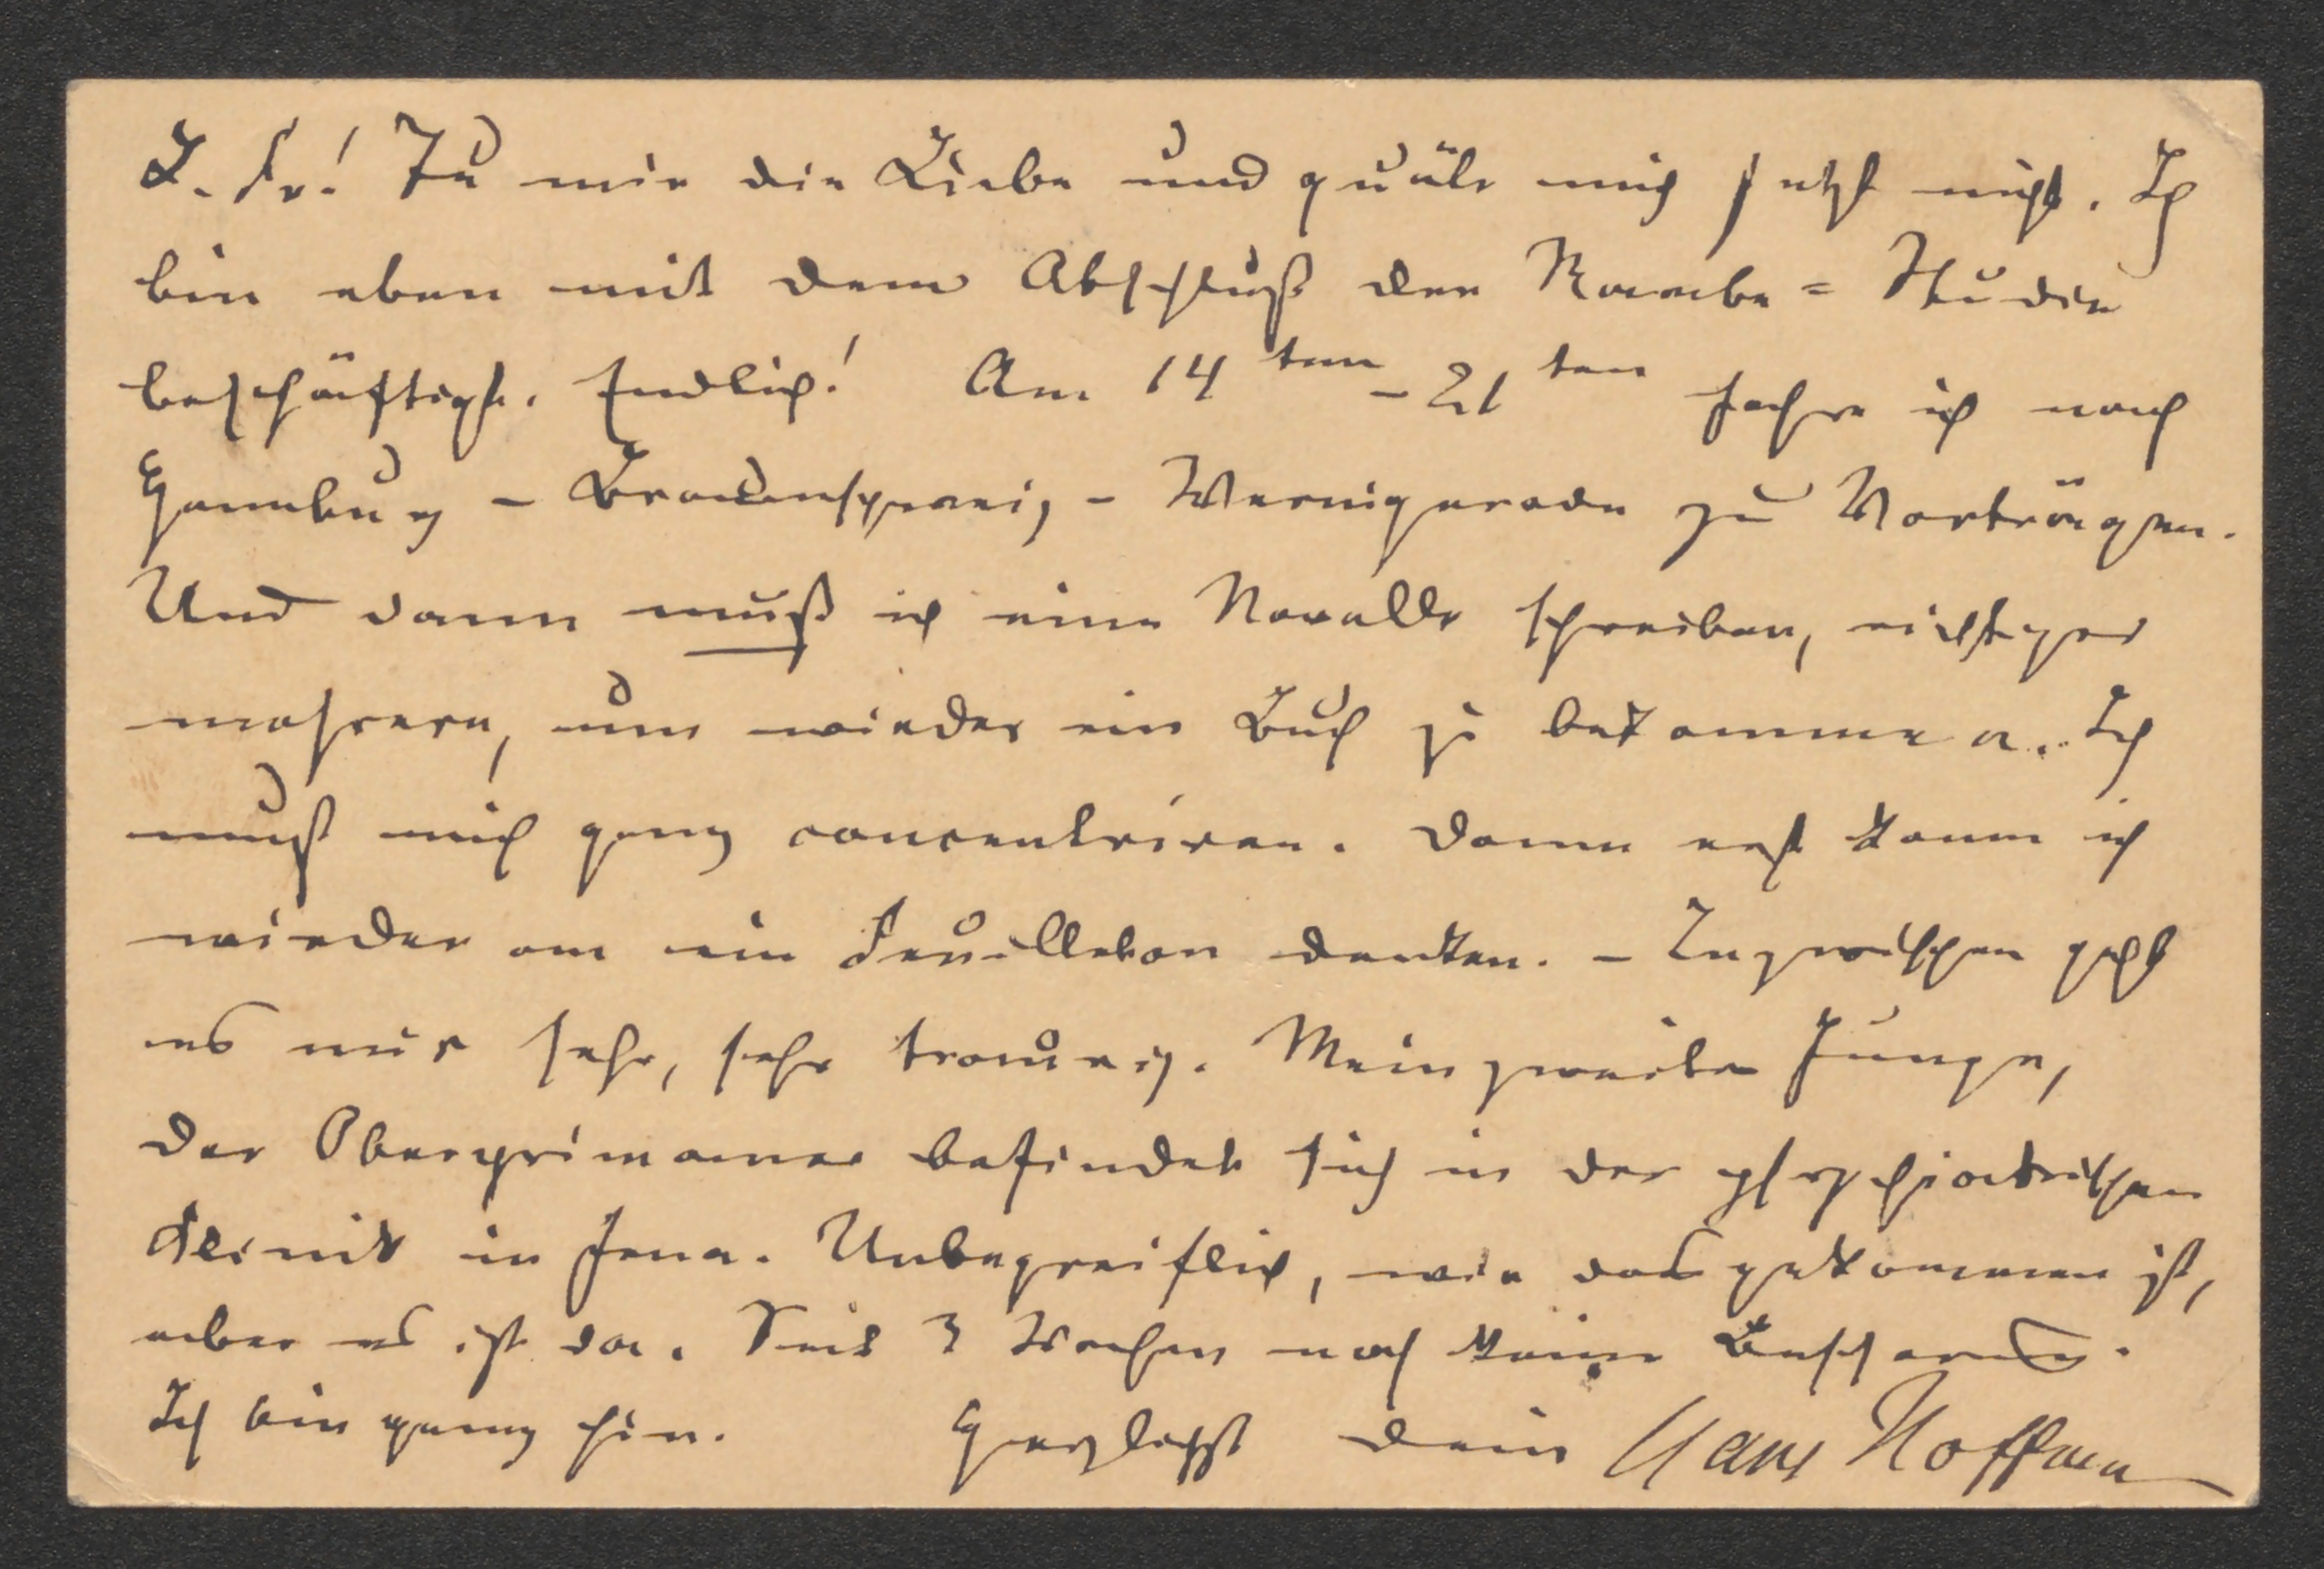 L. Fr! Tu mir die Liebe und quäle mich jetzt nicht. Ich
bin eben mit dem Abschluß der Raabe=Studie
beschäftigt. Endlich! Am 14ten–21ten fahre ich nach
Hamburg – Braunschweig – Wernigerode zu Vorträgen.
Und dann muß ich eine Novelle schreiben, richtiger
mehrere, um wieder ein Buch zu bekommen. Ich
muß mich ganz concentriren. Dann erst kann ich
wieder an ein Feuilleton denken. – Inzwischen geht
es mir sehr, sehr traurig. Mein zweiter Junge,
der Oberprimaner befindet sich in der psychiatrischen
Klinik in Jena. Unbegreiflich, wie das gekommen ist,
aber es ist da. Seit 3 Wochen noch keine Besserung.
Ich bin ganz hin. Herzlichst Dein Hans Hoffmann